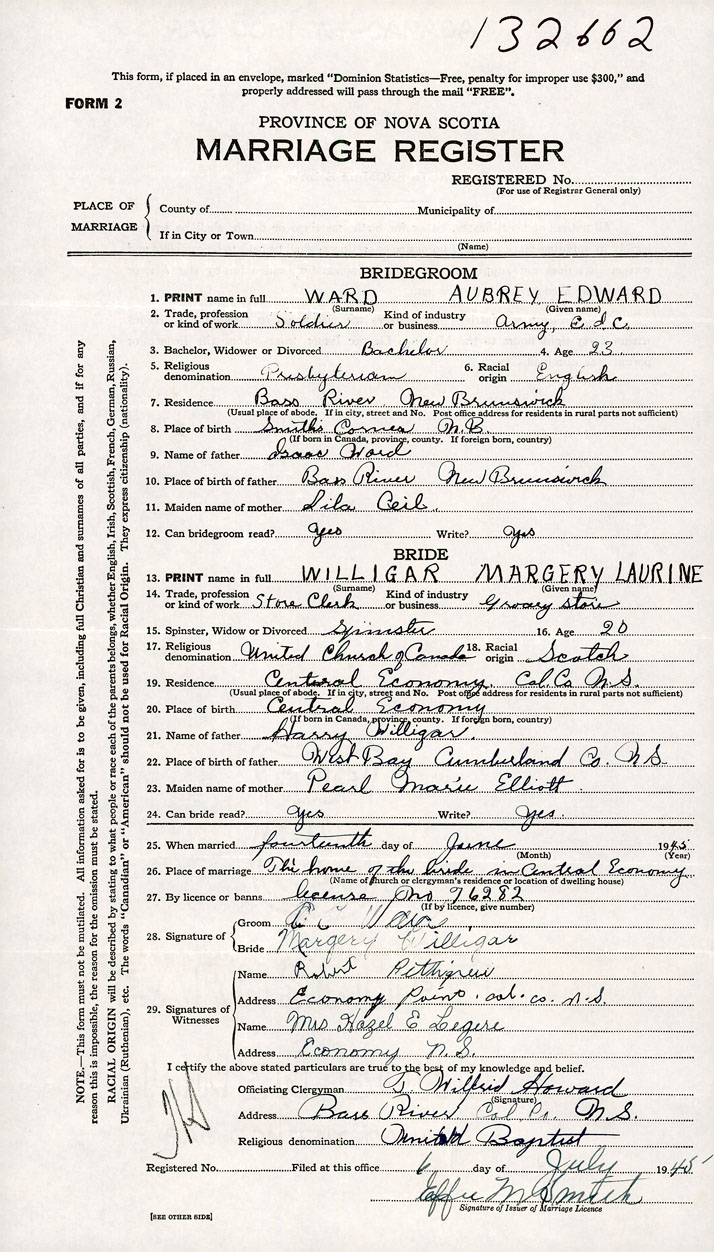 132662
This form, if placed in an envelope, marked "Dominion Statistics—Free, penalty for improper use $300," and
properly addressed will pass through the mail "FREE".
FORM 2
PROVINCE OF NOVA SCOTIA
MARRIAGE REGISTER
REGISTERED No.
(For use of Registrar General only)
PLACE OF MARRIAGE
County of Municipality of
If in City or Town
(Name)
BRIDEGROOM
1. PRINT name in full WARD AUBREY EDWARD
(Surname) (Given name)
2. Trade, profession or kind of work Soldier Kind of industry or business Army, C d C
3. Bachelor, Widower or Divorced Bachelor 4. Age 23
5. Religious denomination Presbyterian 6. Racial origin English
7. Residence Bass River New Brunswick
(Usual place of abode. If in city, street and No. Post office address for residents in rural parts not sufficient)
8. Place of birth Smiths Corner N.B.
(If born in Canada, province, county. If foreign born, country)
9. Name of father Isaac Ward
10. Place of birth of father Bass River New Brunswick
11. Maiden name of mother Lila Ceil
12. Can bridegroom read? Yes Write? Yes
BRIDE
13. PRINT name in full WILLIGAR MARGERY LAURINE
(Surname) (Given name)
14. Trade, profession or kind of work Store Clerk Kind of industry or business Grocery store
15. Spinster, Widow or Divorced Spinster 16. Age 20
17. Religious denomination United Church of Canada 18. Racial origin Scotch
19. Residence Central Economy, Col. Co. N.S.
(Usual place of abode. If in city, street and No. Post office address for residents in rural parts not sufficient)
20. Place of birth Central Economy
(If born in Canada, province, county. If foreign born, country)
21. Name of father Harry Willigar.
22. Place of birth of father West Bay Cumberland Co. N S.
23. Maiden name of mother Pearl Marie Elliott
24. Can bride read? Yes Write? Yes.
25. When married fourteenth day of June 1945
(Month) (Year)
26. Place of marriage The home of the bride in Central Economy
(Name of church or clergyman's residence or location of dwelling house)
27. By licence or banns license No 76282
(If by licence, give number)
28. Signature of
Groom
Bride Margery Willigar
29. Signatures of Witnesses
Name Robert Pettigrew
Address Economy Point. col. co. N.S.
Name Mrs Hazel E Legere
Address Economy N.S.
I certify the above stated particulars are true to the best of my knowledge and belief.
Officiating Clergyman Wilfrid Howard
(Signature)
Address Bass River Col. Co. N.S.
Religious denomination United Baptist
Registered No. Filed at this office 6 day of July 1945
Effie M Smith
Signature of Issuer of Marriage Licence
[SEE OTHER SIDE]
NOTE.—This form must not be mutilated. All information asked for is to be given, including full Christian and surnames of all parties, and if for any
reason this is impossible, the reason for the omission must be stated.
RACIAL ORIGIN will be described by stating to what people or race each of the parents belongs, whether English, Irish, Scottish, French, German, Russian,
Ukrainian (Ruthenian), etc. The words "Canadian" or "American" should not be used for Racial Origin. They express citizenship (nationality).